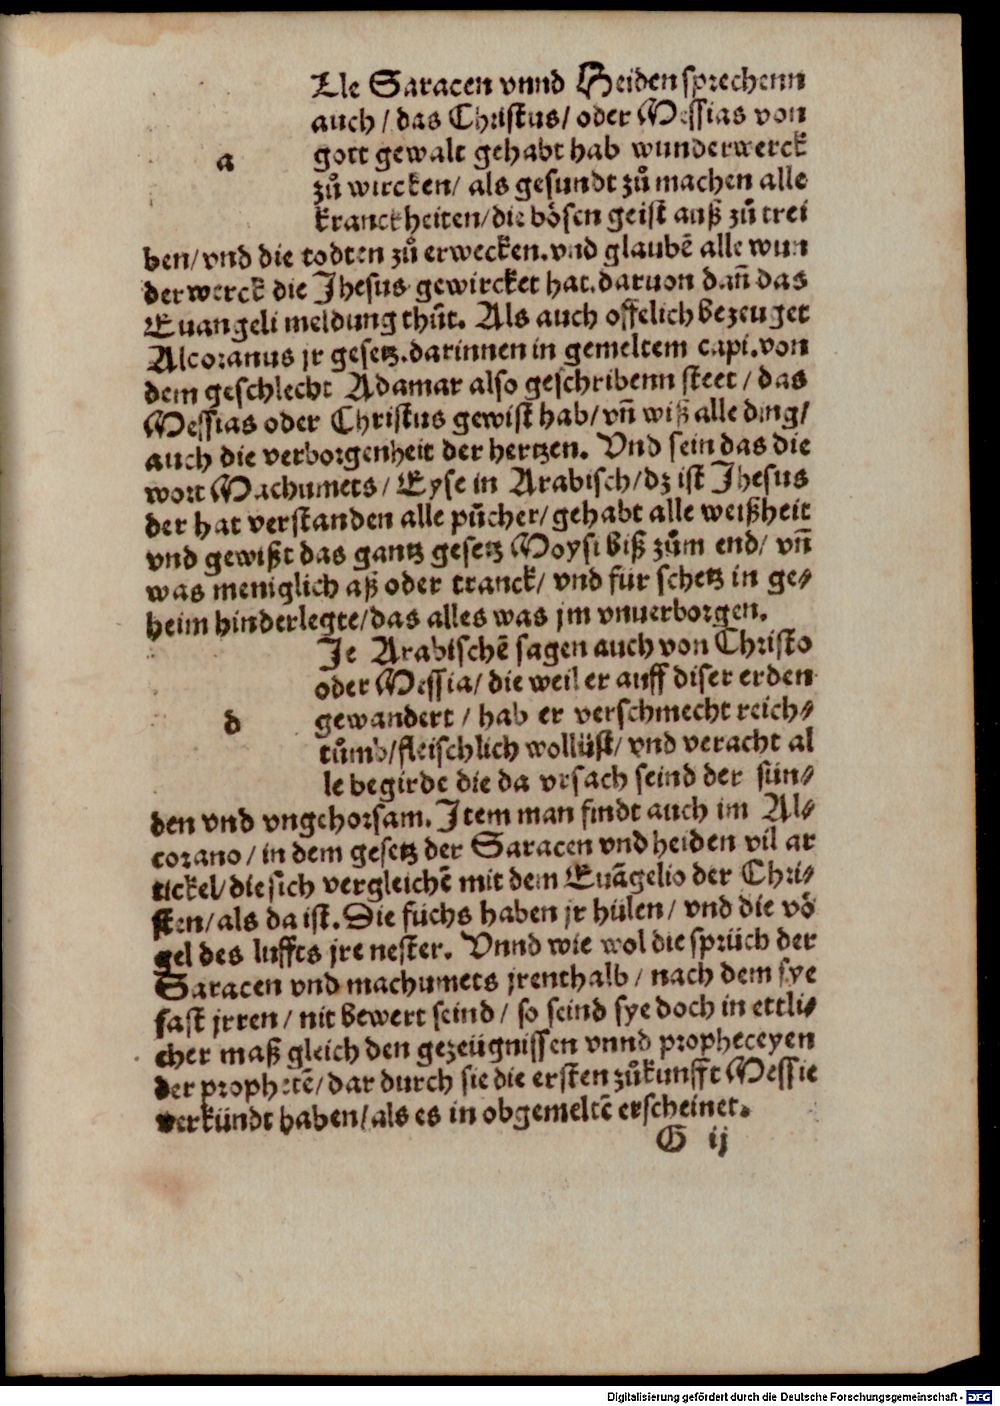 Lle Saracen vnnd Heiden sprechenn
auch / das Christus / oder Messias von
a gott gewalt gehabt hab wunderwerck
zů wircken / als gesundt zů machen alle
kranckheiten / die bösen geist auß zů trei
ben / vnd die todten zů erwecken. vnd glaubē alle wun
derwerck die Jhesus gewircket hat. daruon dañ das
Euangeli meldung thůt. Als auch offelich bezeuget
Alcoranus jr gesetz. darinnen in gemeltem capi. von
dem geschlecht Adamar also geschribenn steet / das
Messias oder Christus gewist hab / vñ wiß alle ding /
auch die verborgenheit der hertzen. Vnd sein das die
wort Machumets / Eyse in Arabisch / dz ist Jhesus
der hat verstanden alle půcher / gehabt alle weißheit
vnd gewißt das gantz gesetz Moysi biß zům end / vñ
was meniglich aß oder tranck / vnd für schetz in ge⸗
heim hinderlegte / das alles was jm vnuerborgen.
Je Arabischē sagen auch von Christo
oder Messia / die weil er auff diser erden
d gewandert / hab er verschmecht reich⸗
tůmb / fleischlich wollüst / vnd veracht al
le begirde die da vrsach seind der sün⸗
den vnd vngehorsam. Jtem man findt auch im Al⸗
corano / in dem gesetz der Saracen vnd heiden vil ar
tickel / die sich vergleichē mit dem Euāgelio der Chri⸗
sten / als da ist. Die füchs haben jr hülen / vnd die vö
gel des luffts jre nester. Vnnd wie wol die sprüch der
Saracen vnd machumets jrenthalb / nach dem sye
fast jrren / nit bewert seind / so seind sye doch in ettli⸗
cher maß gleich den gezeügnissen vnnd propheceyen
der prophetē / dar durch sie die ersten zůkunfft Messie
verkündt haben / als es in obgemeltē erscheinet.
G ij
Digitalisierung gefördert durch die Deutsche Forschungsgemeinschaft - DFG